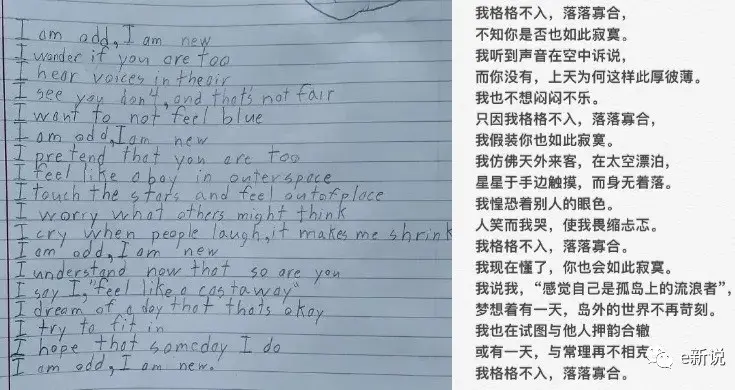 I am odd, I am new
I wonder if you are too
I hear voices in the air
I see you don't, and that's not fair
I want to not feel blue
I am odd, I am new
I pretend that you are too
I feel like a boy in outerspace
I touch the stars and feel out of place
I worry what others might think
I cry when people laugh, it makes me shrink
I am odd, I am new
I understand now that so are you
I say I, "feel like a castaway"
I dream of a day that thats okay
I try to fit in
I hope that someday I do
I am odd, I am new.
我格格不入，落落寡合，
不知你是否也如此寂寞。
我听到声音在空中诉说，
而你没有，上天为何这样此厚彼薄。
我也不想闷闷不乐。
只因我格格不入，落落寡合，
我假装你也如此寂寞。
我仿佛天外来客，在太空漂泊，
星星于手边触摸，而身无着落。
我惶恐着别人的眼色。
人笑而我哭，使我畏缩忐忑。
我格格不入，落落寡合。
我现在懂了，你也会如此寂寞。
我说我，“感觉自己是孤岛上的流浪者”，
梦想着有一天，岛外的世界不再苛刻。
我也在试图与他人押韵合辙
或有一天，与常理再不相克
我格格不入，落落寡合。
e新说